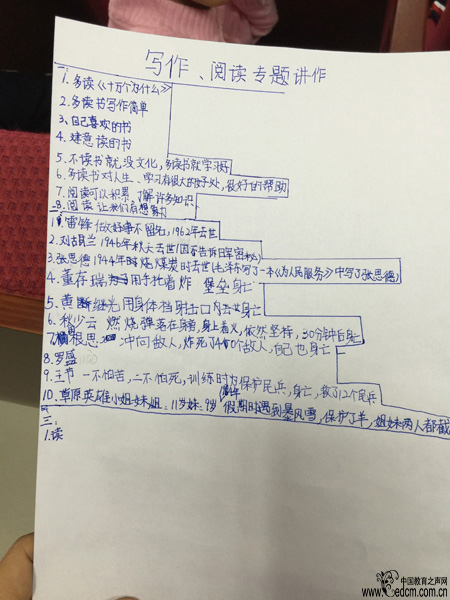 写作、阅读专题讲作
1.多读《十万个为什么》
2.多读书写作简单
3、自己喜欢的书
4.建意读的书
5.不读书就没文化,多读书就学好
6.多读书对人生、学习有很大的好处,很好的帮助
7.阅读可以积累,了解许多知识
8.阅读让我们有想象力
1.雷锋 做好事不留名,1962年去世
2.刘胡兰 1946年秋天去世
3.张思德 1944年时烧煤炭时去世(毛泽东写了一本《为人民服务》中写了张思德)
4.董存瑞 用手托着炸 堡垒身亡
5.黄继光 用身体挡射击口内去世身亡
6.秋少云 燃烧弹落在身旁,身上着火,依然坚持,30分钟后身亡
7.杨根思 冲向敌人,炸死了40个敌人,自己也身亡
8.罗盛
9.王杰 一不怕苦,二不怕死,训练时为保护民兵,身亡,救了12个民兵
10.草原英雄小姐妹 姐:11岁 妹:9岁 假期时遇到暴风雪,保护了羊,姐妹两人都截
三.
1.读
中国教育之声网
edcm.com.cn